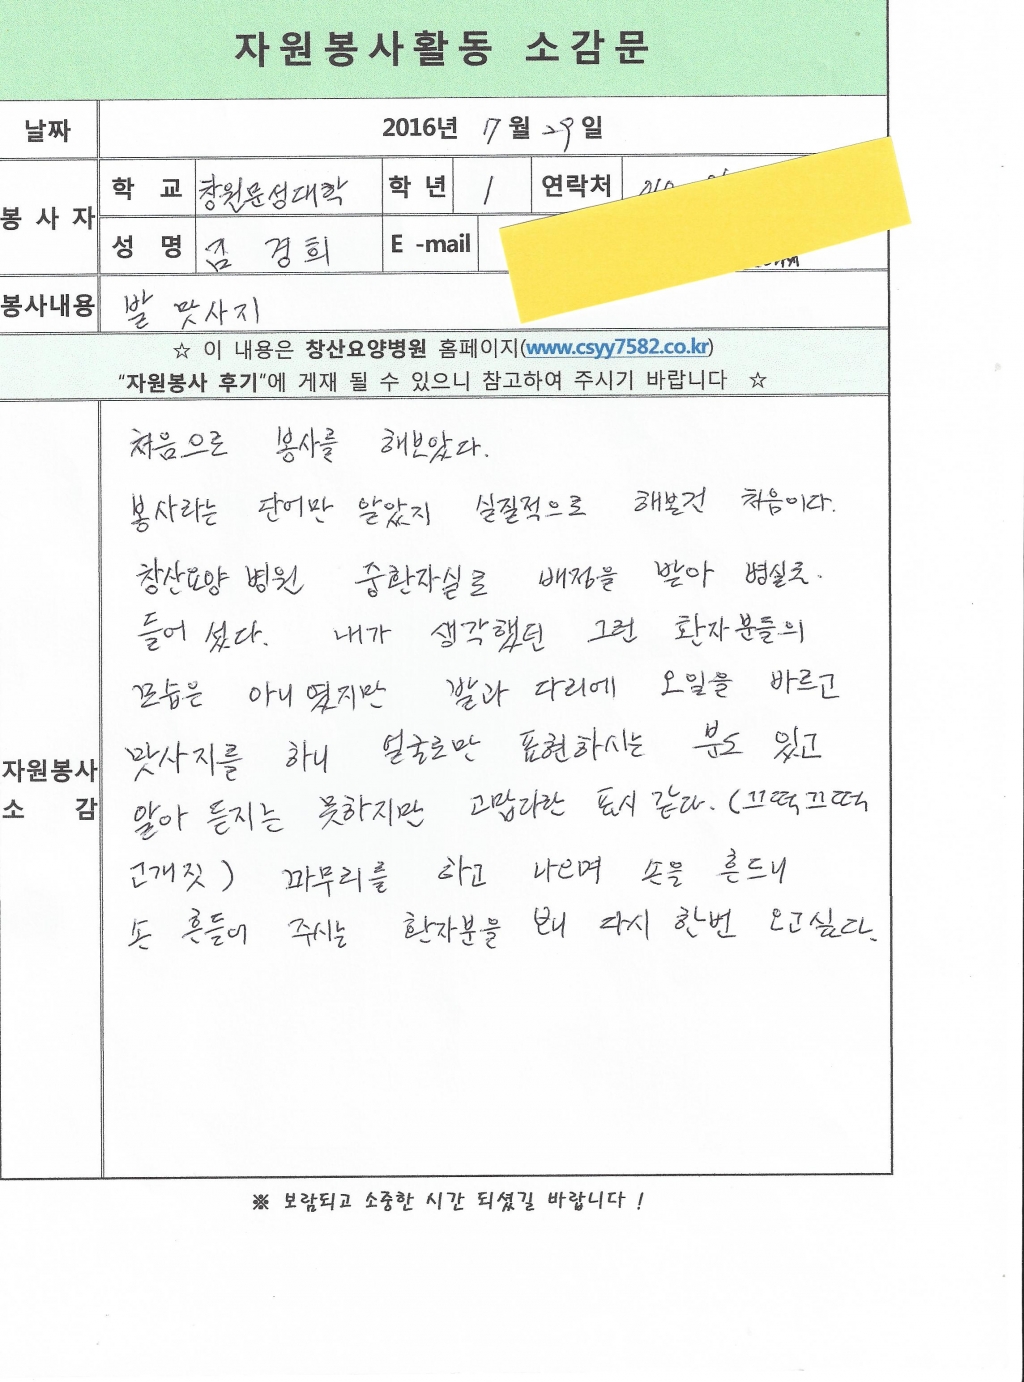 자원봉사활동 소감문
날짜 2016년 7월 29일
봉사자
학 교 창원문성대학 학 년 1 연락처
성 명 김경희 E-mail
봉사내용 발 맛사지
☆ 이 내용은 창산요양병원 홈페이지(www.csyy7582.co.kr)
"자원봉사 후기"에 게재 될 수 있으니 참고하여 주시기 바랍니다 ☆
자원봉사
소 감
처음으로 봉사를 해보았다.
봉사라는 단어만 알았지 실질적으로 해보건 처음이다.
창산요양 병원 중환자실로 배정을 받아 병실로.
들어 섰다. 내가 생각했던 그런 환자분들의
모습은 아니 였지만 발과 다리에 오일을 바르고
맛사지를 하니 얼굴로만 표현하시는 분도 있고
알아 듣지는 못하지만 고맙다란 표시 같다. (끄떡끄떡
고개짓) 마무리를 하고 나으며 손을 흔드니
손 흔들어 주시는 환자분을 보니 다시 한번 오고싶다.
※ 보람되고 소중한 시간 되셨길 바랍니다 !